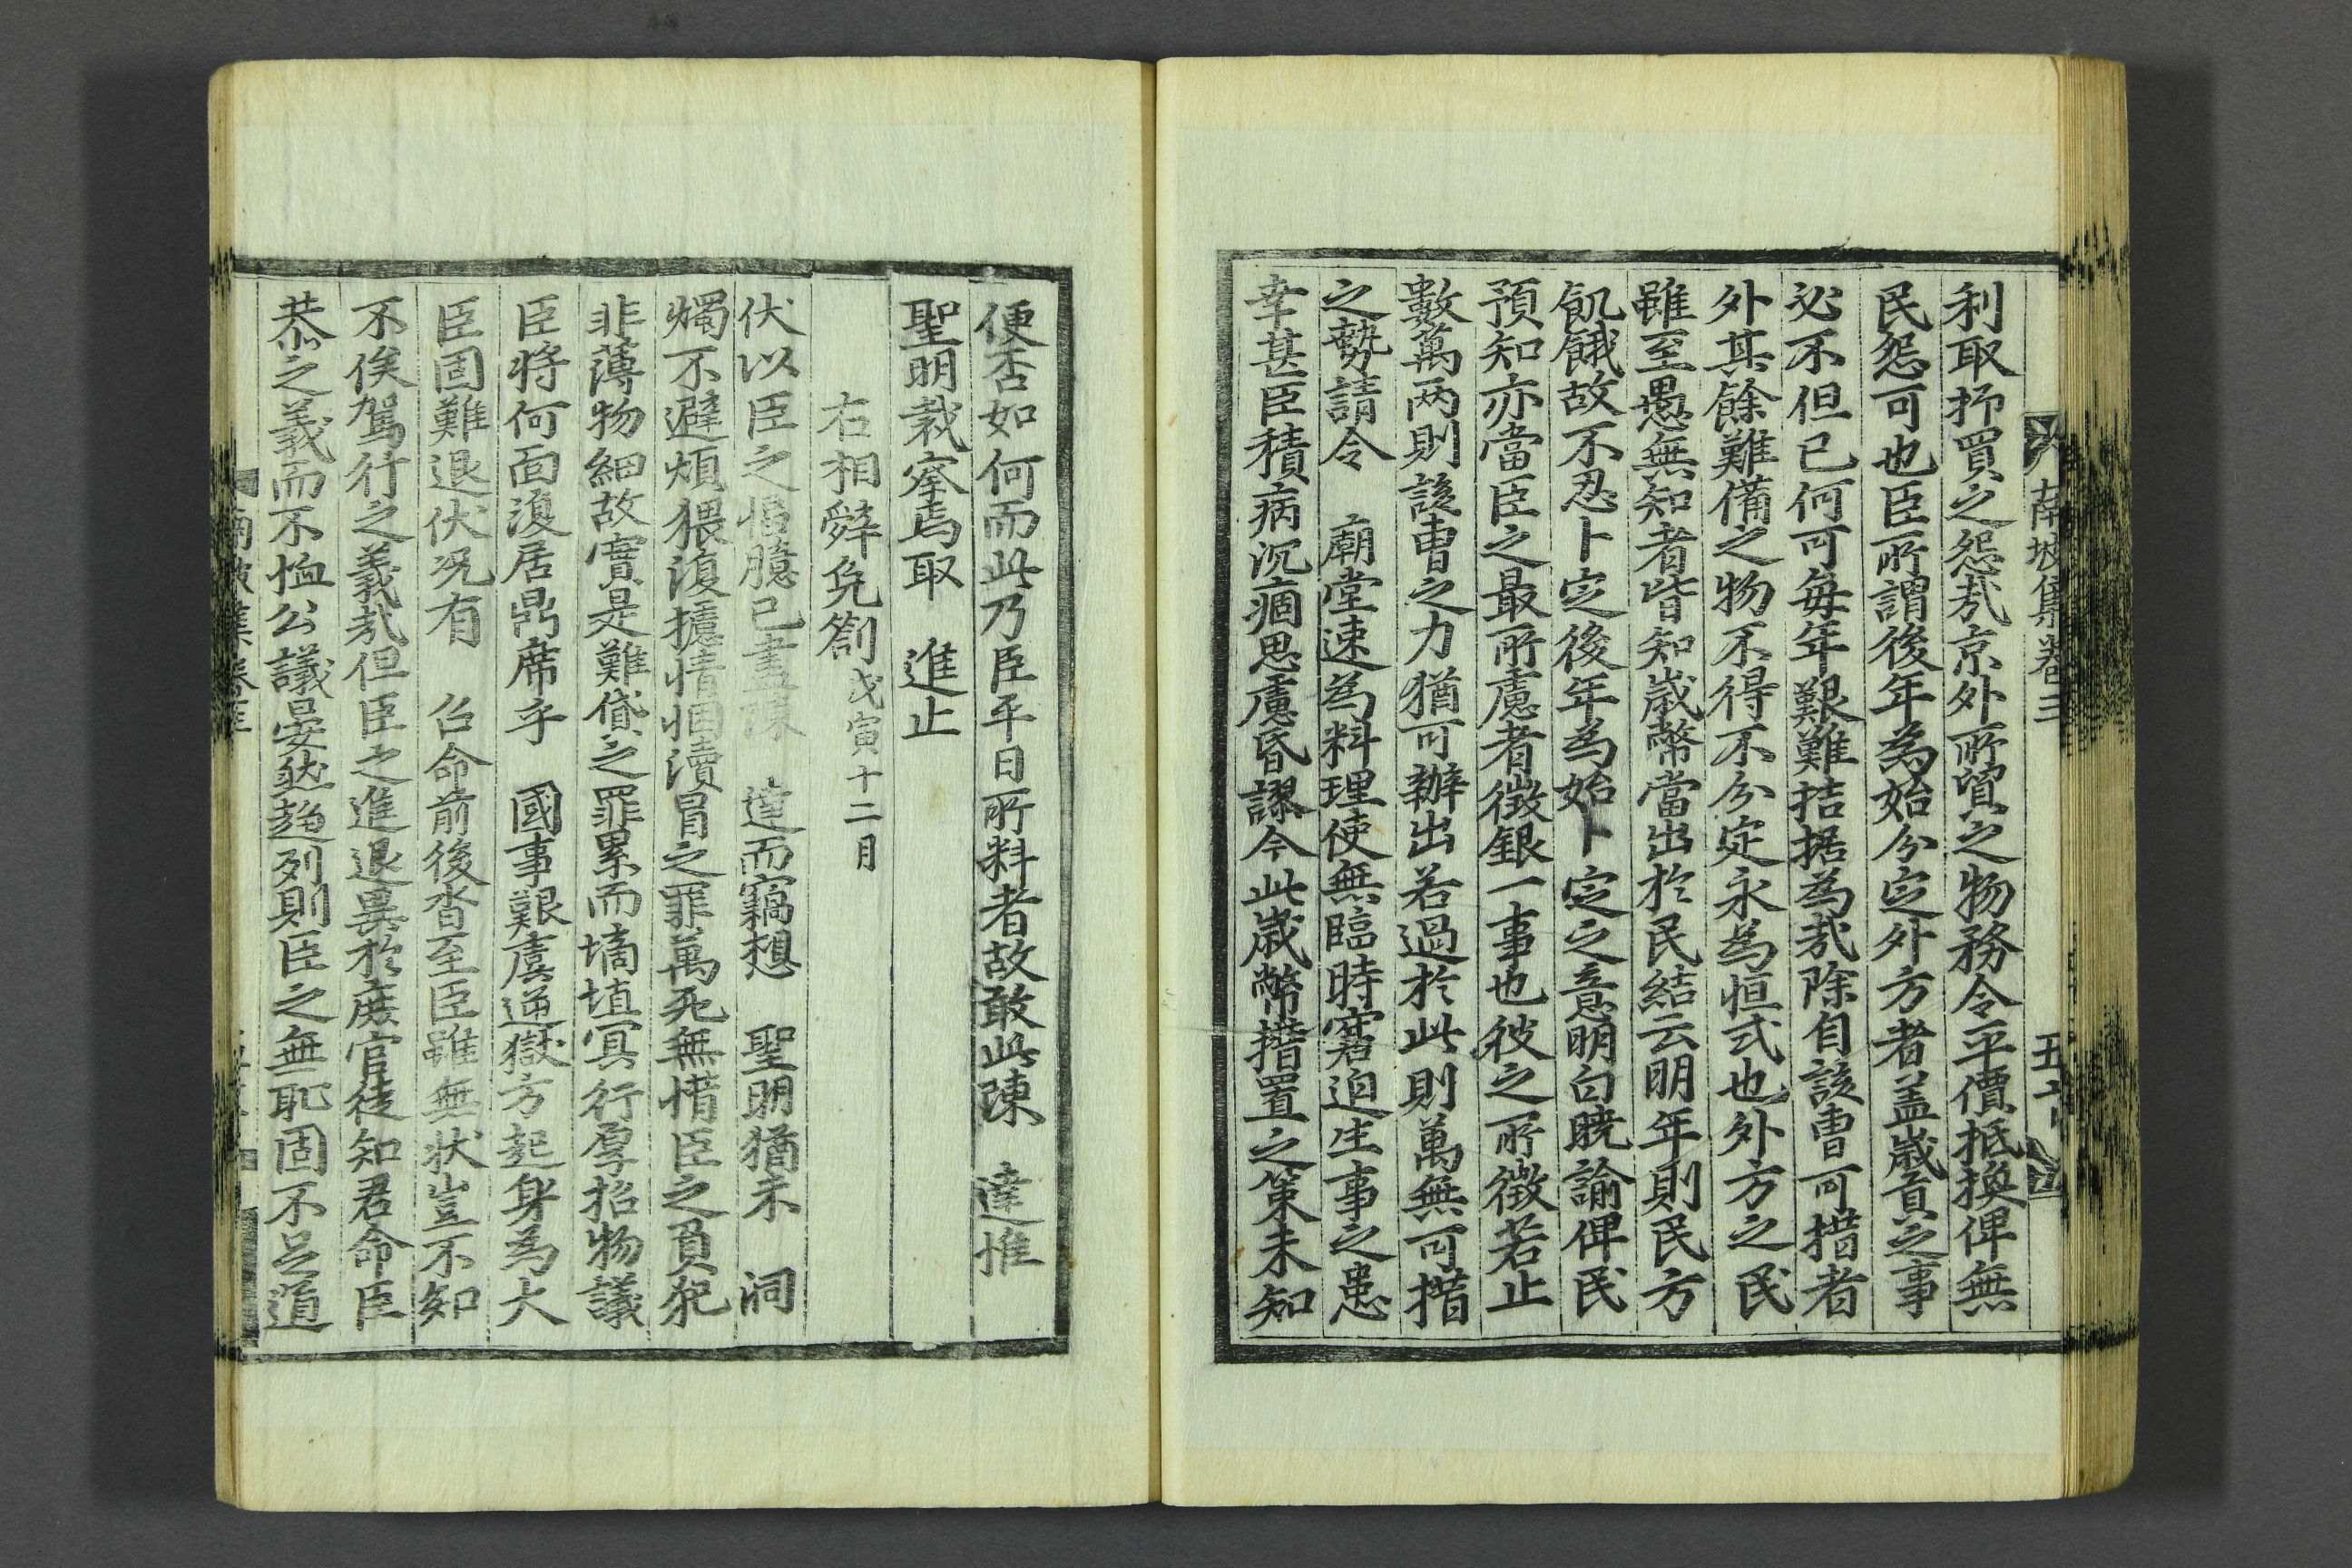 南坡集卷三 五十
利取抑買之怨哉京外所貿之物務令平價抵換俾無
民怨可也臣所謂後年爲始分定外方者盖歲貢之事
必不但已何可每年艱難拮据爲哉除自該曹可措者
外其餘難備之物不得不分定永爲恒式也外方之民
雖至愚無知者皆知歲幣當出於民結云明年則民方
飢餓故不忍卜定後年爲始卜定之意明白曉諭俾民
預知亦當臣之最所慮者徵銀一事也彼之所徵若止
數萬兩則該曹之力猶可辦出若過於此則萬無可措
之勢請令 廟堂速爲料理使無臨時窘迫生事之患
幸甚臣積病沉痼思慮昏謬今此歲幣措置之策未知
便否如何而此乃臣平日所料者故敢此陳 達惟
聖明裁察焉取 進止
右相辭免箚戊寅十二月
伏以臣之情臆已盡陳 達而竊想 聖明猶未 洞
燭不避煩猥復攄情悃瀆冒之罪萬死無惜臣之負犯
非薄物細故實是難貸之罪累而墑埴冥行厚招物議
臣將何面復居鼎席乎 國事艱虞逆獄方起身爲大
臣固難退伏况有 召命前後沓至臣雖無狀豈不知
不俟駕行之義哉但臣之進退異於庶官徒知君命臣
恭之義而不恤公議晏然趍列則臣之無耻固不足道
南坡集卷三